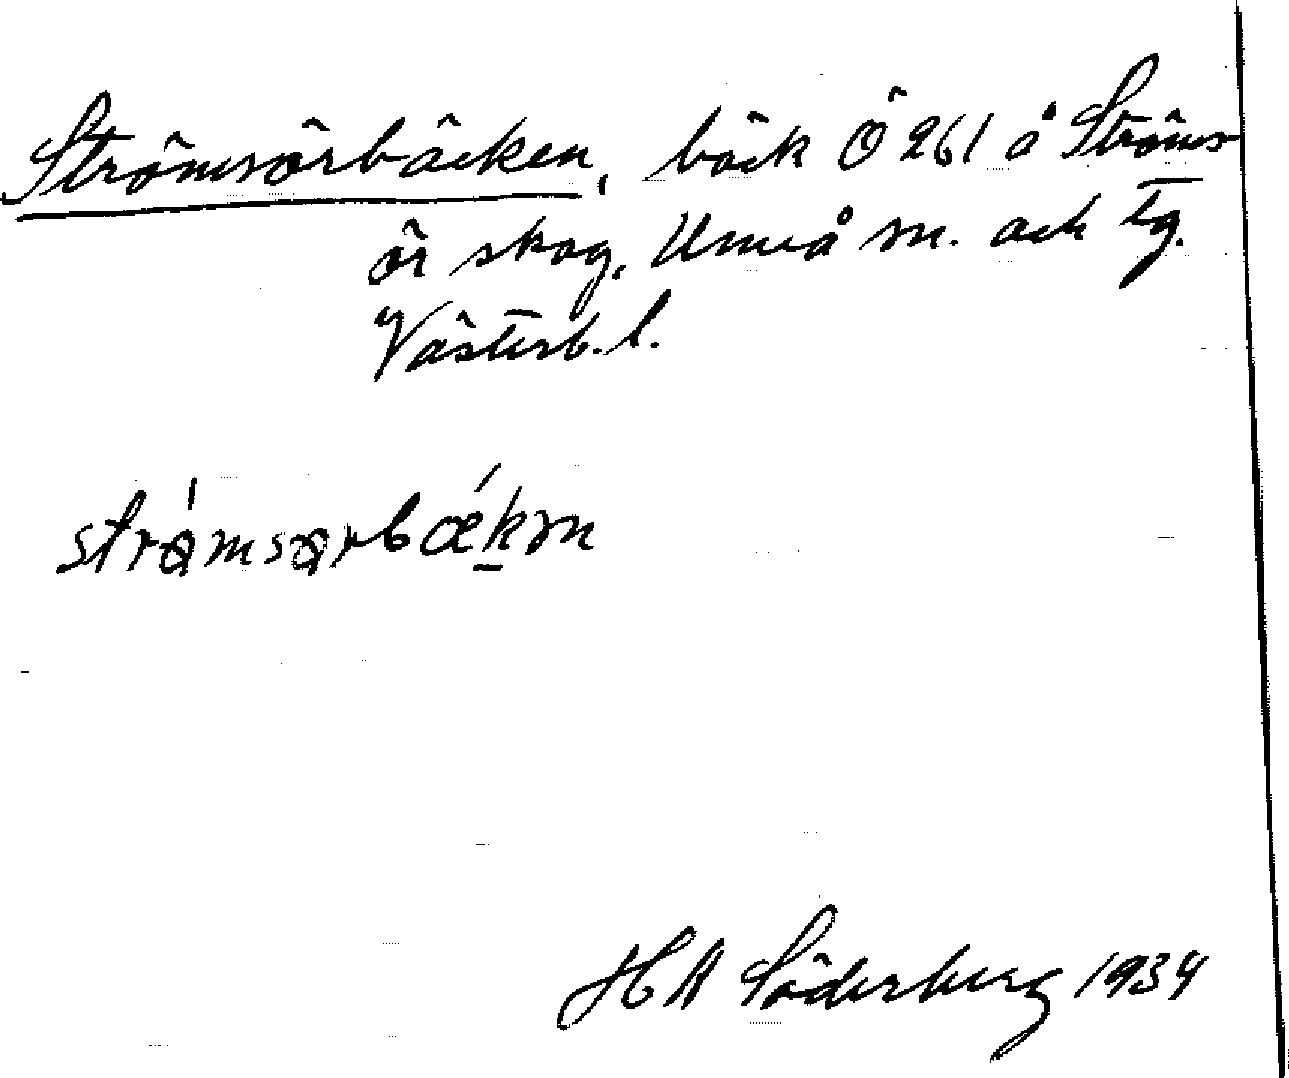 Strömsörbäcken, bäck Ö 261 å Ströms
ör skog, Umeå sn. och tg.
Västerb. l.
strö́msörbǽkm
H A Söderberg 1934